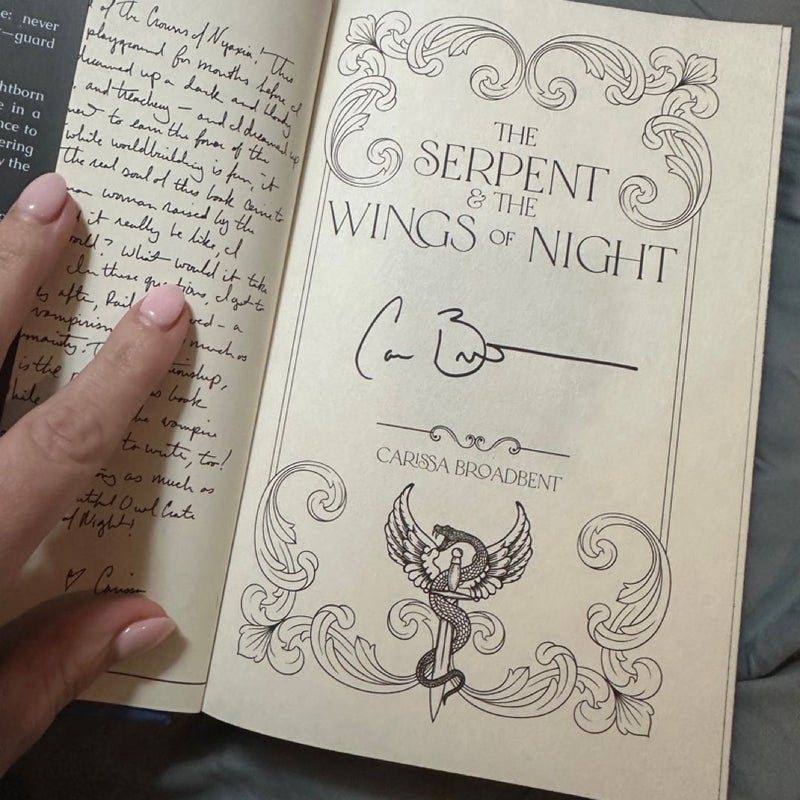 e: never
—guard
htborn
e in a
nce to
ering
y the
of the Crowns of Nyaxia! This
playground for months before I
dreamed up a dark and bloody
and treachery – and I dreamed up
to earn the favor of the
while worldbuilding is fun, it
The real soul of this book came to
woman raised by the
it really be like, I
world? What would it take
In these questions, I got to
after, Rai
ved – a
vampirism
much as
manity. T
tionship,
is the
book
hile
the vampire
to write, too!
as much as
Owl Crate
of Night!
♡ Carissa
THE
SERPENT
& THE
WINGS OF NIGHT
CARISSA BROADBENT